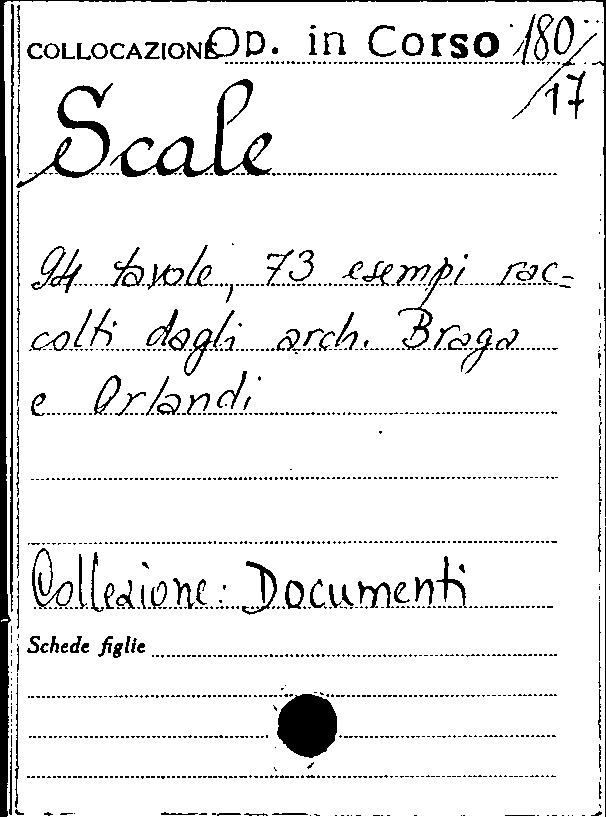 COLLOCAZIONE Op. in Corso 180/17
Scale
94 tavole, 73 esempi rac=
colti dagli arch. Braga
e Orlandi
Collezione: Documenti
Schede figlie